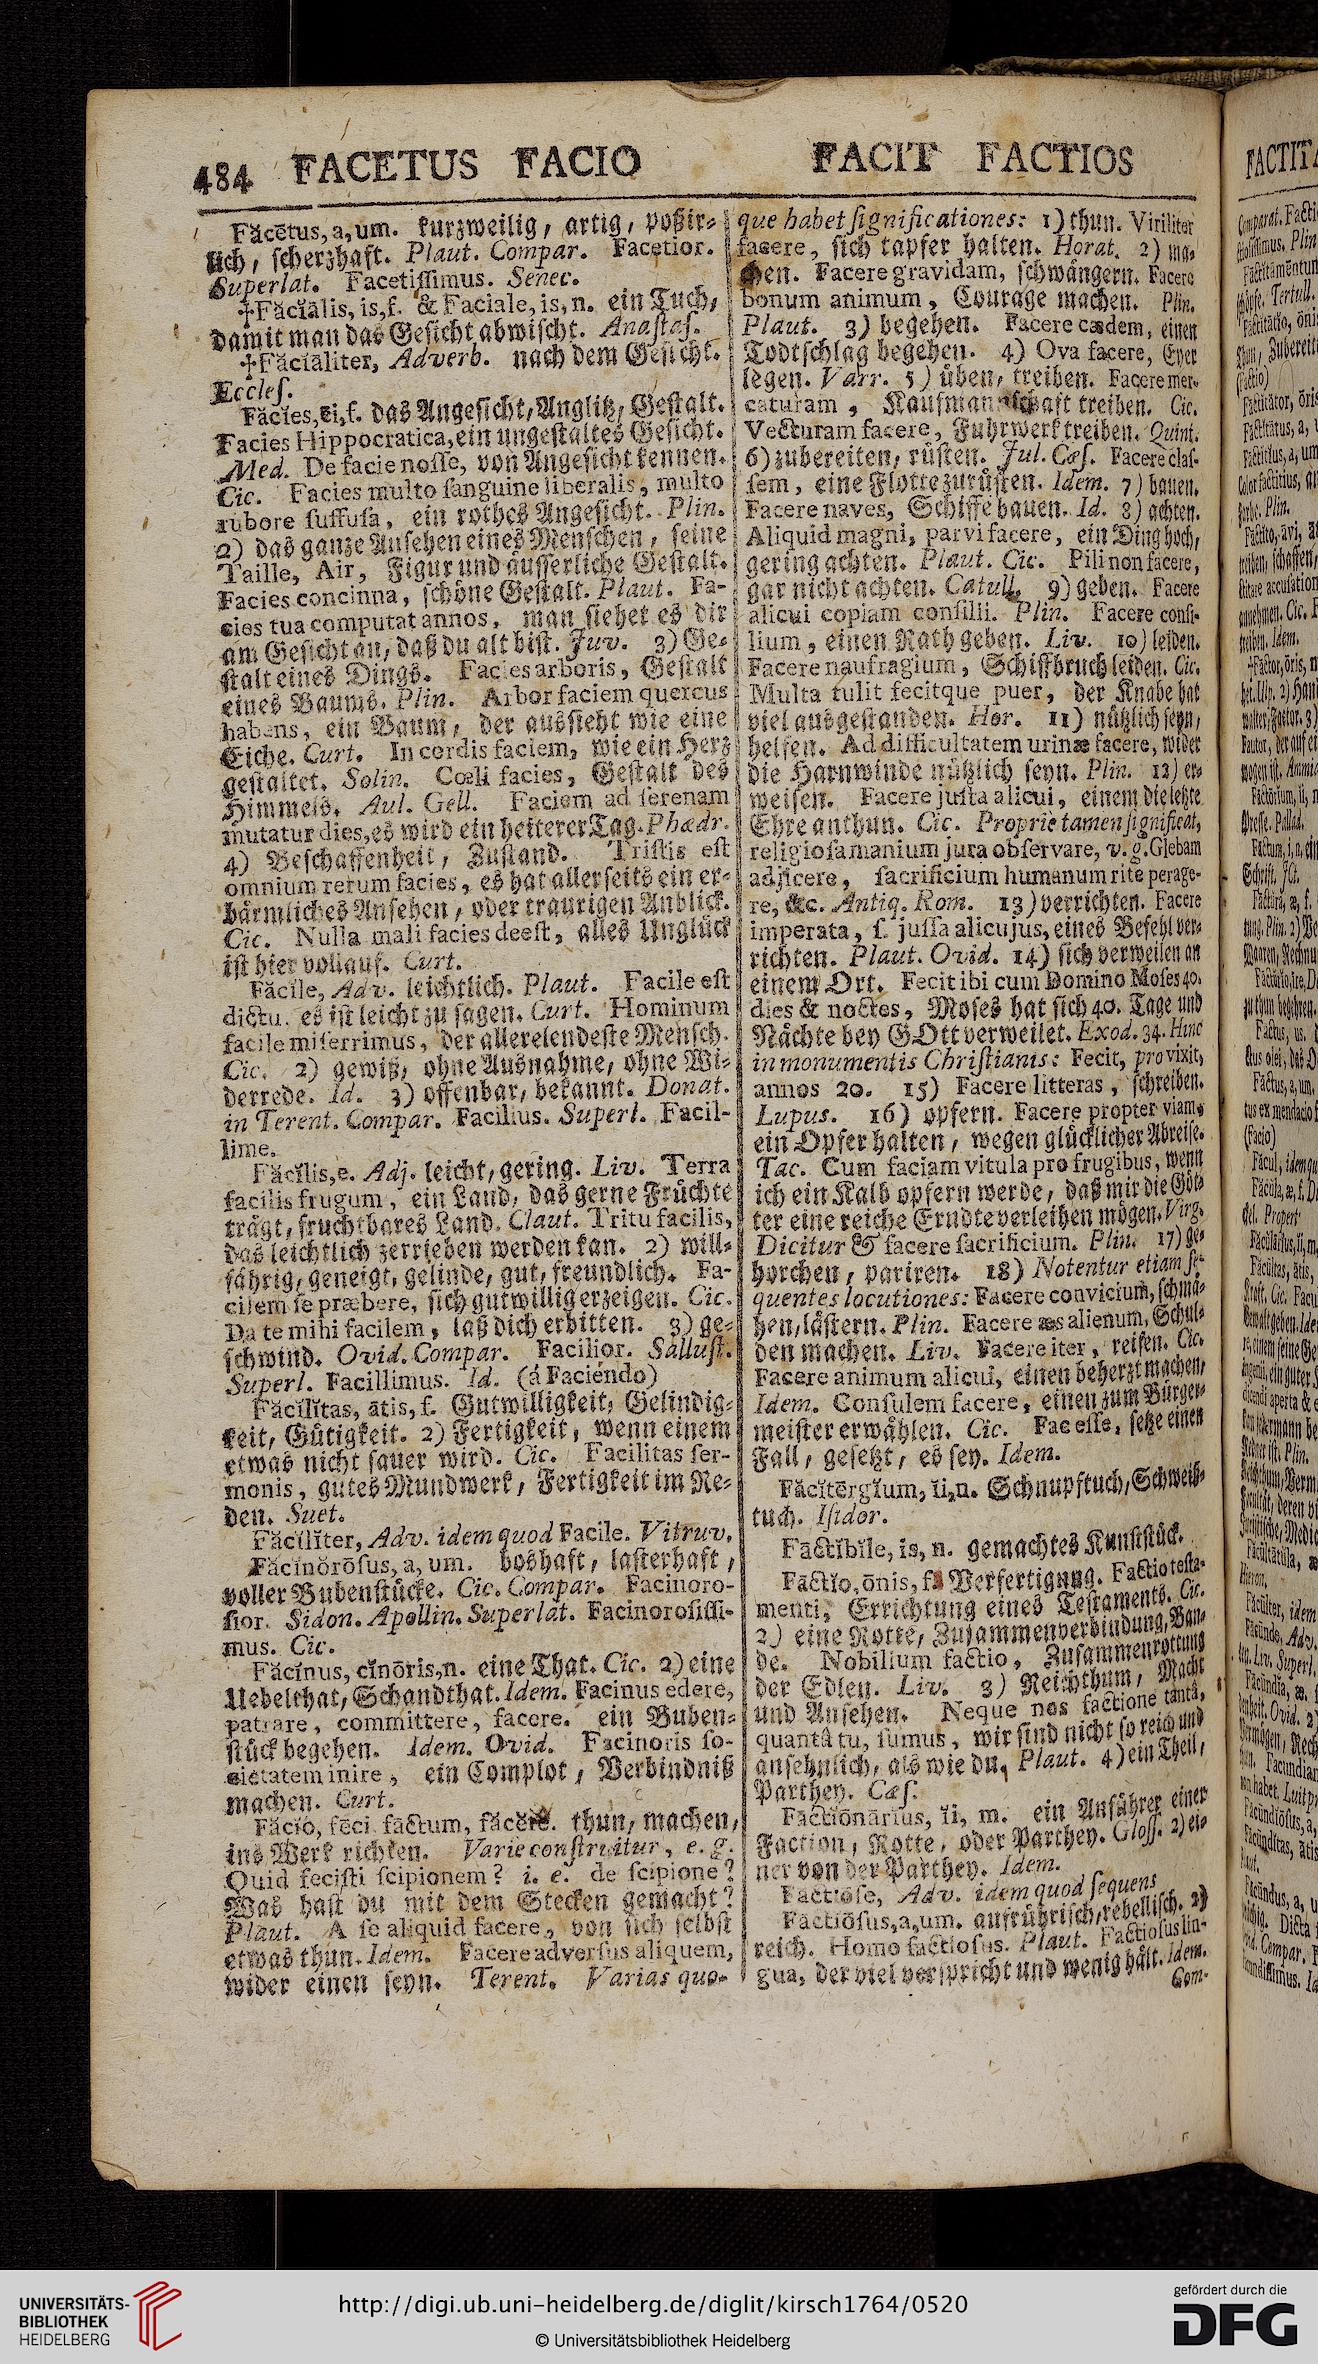 484 FACETUS FACIO
Făcētus, a, um. kurzweilig, artig, poßir-
lich, scherzhaft. Plaut. Compar. Facetior.
Superlat. Facetiſſimus. Senec.
✢Făcĭālis, is, f. & Faciale, is, n. ein Tuch,
damit man das Gesicht abwischt. Anaſtaſ.
✢Făcĭāliter, Adverb. nach dem Gesicht.
Eccleſ.
Făcĭes, ēi, f. das Angesicht, Anglitz, Gestalt.
Facies Hippocratica, ein ungestaltes Gesicht.
Med. De facie noſſe, von Angesicht kennen.
Cic. Facies multo ſanguine liberalis, multo
rubore ſuffuſa, ein rothes Angesicht. Plin.
2) das ganze Ansehen eines Menschen, seine
Taille, Air, Figur und äusserliche Gestalt.
Facies concinna, schöne Gestalt. Plaut. Fa-
cies tua computat annos, man siehet es dir
am Gesicht an, daß du alt bist. Juv. 3) Ge-
stalt eines Dings. Facies arboris, Gestalt
eines Baums. Plin. Arbor faciem quercus
habens, ein Baum, der aussieht wie eine
Eiche. Curt. In cordis faciem, wie ein Herz
gestaltet. Solin. Cœli facies, Gestalt des
Himmels. Aul. Gell. Faciem ad ſerenam
mutatur dies, es wird ein heiterer Tag. Phædr.
4) Beschaffenheit, Zustand. Triſtis eſt
omnium rerum facies, es hat allerseits ein er-
bärmliches Ansehen, oder traurigen Anblick.
Cic. Nulla mali facies deeſt, alles Unglück
ist hier vollauf. Curt.
Făcĭle, Adv. leichtlich. Plaut. Facile eſt
dictu, es ist leicht zu sagen. Curt. Hominum
facile miſerrimus, der allerelendeste Mensch.
Cic. 2) gewiß, ohne Ausnahme, ohne Wi-
derrede. Id. 3) offenbar, bekannt. Donat.
in Terent. Compar. Facilius. Superl. Facil-
lime.
Făcĭlis, e. Adj. leicht, gering. Liv. Terra
facilis frugum, ein Land, das gerne Früchte
trägt, fruchtbares Land. Claut. Tritu facilis,
das leichtlich zerrieben werden kan. 2) will-
fährig, geneigt, gelinde, gut, freundlich. Fa-
cilem ſe præbere, sich gutwillig erzeigen. Cic.
Da te mihi facilem, laß dich erbitten. 3) ge-
schwind. Ovid. Compar. Facilior. Salluſt.
Superl. Facillimus. Id. (á Faciendo)
Făcĭlĭtas, ātis, f. Gutwilligkeit, Gelindig-
keit, Gütigkeit. 2) Fertigkeit, wenn einem
etwas nicht sauer wird. Cic. Facilitas ſer-
monis, gutes Mundwerk, Fertigkeit im Re-
den. Suet.
Făcĭlĭter, Adv. idem quod Facile. Vitruv.
Făcĭnŏrōſus, a, um. boshaft, lasterhaft,
voller Bubenstücke. Cic. Compar. Facinoro-
ſior. Sidon. Apollin. Superlat. Facinoroſiſſi-
mus. Cic.
Făcĭnus, cĭnŏris, n. eine That. Cic. 2) eine
Uebelthat, Schandthat. Idem. Facinus edere,
patrare, committere, facere. ein Buben-
stück begehen. Idem. Ovid. Facinoris ſo-
cietatem inire, ein Complot, Verbindniß
machen. Curt.
Făcĭo, fēci factum, făcĕre. thun, machen,
ins Werk richten. Varie conſtruitur, e. g.
Quid feciſti ſcipionem? i. e. de ſcipione?
Was hast du mit dem Stecken gemacht?
Plaut. A ſe aliquid facere, von sich selbst
etwas thun. Idem. Facere adverſus aliquem,
wider einen seyn. Terent. Varias quo-
FACIT FACTIOS
que habet ſignificationes: 1) thun. Viriliter
facere, sich tapfer halten. Horat. 2) ma-
chen. Facere gravidam, schwängern. Facere
bonum animum, Courage machen. Plin.
Plaut. 3) begehen. Facere cædem, einen
Todtschlag begehen. 4) Ova facere, Eyer
legen. Varr. 5) üben, treiben. Facere mer-
caturam, Kaufmannschaft treiben. Cic.
Vecturam facere, Fuhrwerk treiben. Quint.
6) zubereiten, rüsten. Jul. Cæſ. Facere claſ-
ſem, eine Flotte zurüsten. Idem. 7) bauen.
Facere naves, Schiffe bauen. Id. 8) achten.
Aliquid magni, parvi facere, ein Ding hoch,
gering achten. Plaut. Cic. Pili non facere,
gar nicht achten. Catull. 9) geben. Facere
alicui copiam conſilii. Plin. Facere conſi-
lium, einen Rath geben. Liv. 10) leiden.
Facere naufragium, Schiffbruch leiden. Cic.
Multa tulit fecitque puer, der Knabe hat
viel ausgestanden. Hor. 11) nützlich seyn,
helfen. Ad difficultatem urinæ facere, wider
die Harnwinde nützlich seyn. Plin. 12) er-
weisen. Facere juſta alicui, einem die letzte
Ehre anthun. Cic. Proprie tamen ſignificat,
religioſa manium jura obſervare, v. g. Glebam
adjicere, ſacrificium humanum rite perage-
re, &c. Antiq. Rom. 13) verrichten. Facere
imperata, ſ. juſſa alicujus, eines Befehl ver-
richten. Plaut. Ovid. 14) sich verweilen an
einem Ort. Fecit ibi cum Domino Moſes 40.
dies & noctes, Moses hat sich 40. Tage und
Nächte bey GOtt verweilet. Exod. 34. Hinc
in monumentis Chriſtianis: Fecit, pro vixit,
annos 20. 15) Facere litteras, schreiben.
Lupus. 16) opfern. Facere propter viam,
ein Opfer halten, wegen glücklicher Abreise.
Tac. Cum faciam vitula pro frugibus, wenn
ich ein Kalb opfern werde, daß mir die Göt-
ter eine reiche Erndte verleihen mögen. Virg.
Dicitur & facere ſacrificium. Plin. 17) ge-
horchen, pariren. 18) Notentur etiam ſe-
quentes locutiones: Facere convicium, schmä-
hen, lästern. Plin. Facere æs alienum, Schul-
den machen. Liv. Facere iter, reisen. Cic.
Facere animum alicui, einen beherzt machen,
Idem. Conſulem facere, einen zum Bürger-
meister erwählen. Cic. Fac eſſe, setze einen
Fall, gesetzt, es sey. Idem.
Făcĭtērgĭum, ĭi, n. Schnupftuch, Schweiß-
tuch. Iſidor.
Factĭbĭle, is, n. gemachtes Kunststück.
Factĭo, ōnis, f. Verfertigung. Factio teſta-
menti, Errichtung eines Testaments. Cic.
2) eine Rotte, Zusammenverbindung, Ban-
de. Nobilium factio, Zusammenrottung
der Edlen. Liv. 3) Reichthum, Macht
und Ansehen. Neque nos factione tantâ,
quantâ tu, ſumus, wir sind nicht so reich und
ansehnlich, als wie du. Plaut. 4) ein Theil,
Parthey. Cæſ.
Factĭōnārĭus, ĭi, m. ein Anführer einer
Faction, Rotte, oder Parthey. Gloſſ. 2) ei-
ner von der Parthey. Idem.
Factĭōſe, Adv. idem quod ſequens
Factĭōſus, a, um. aufrührisch, rebellisch. 2)
reich. Homo factioſus. Plaut. Factioſus lin-
gua, der viel verspricht und wenig hält. Idem.
Com-
UNIVERSITÄTS-
BIBLIOTHEK
HEIDELBERG
http://digi.ub.uni-heidelberg.de/diglit/kirsch1764/0520
© Universitätsbibliothek Heidelberg
gefördert durch die
DFG